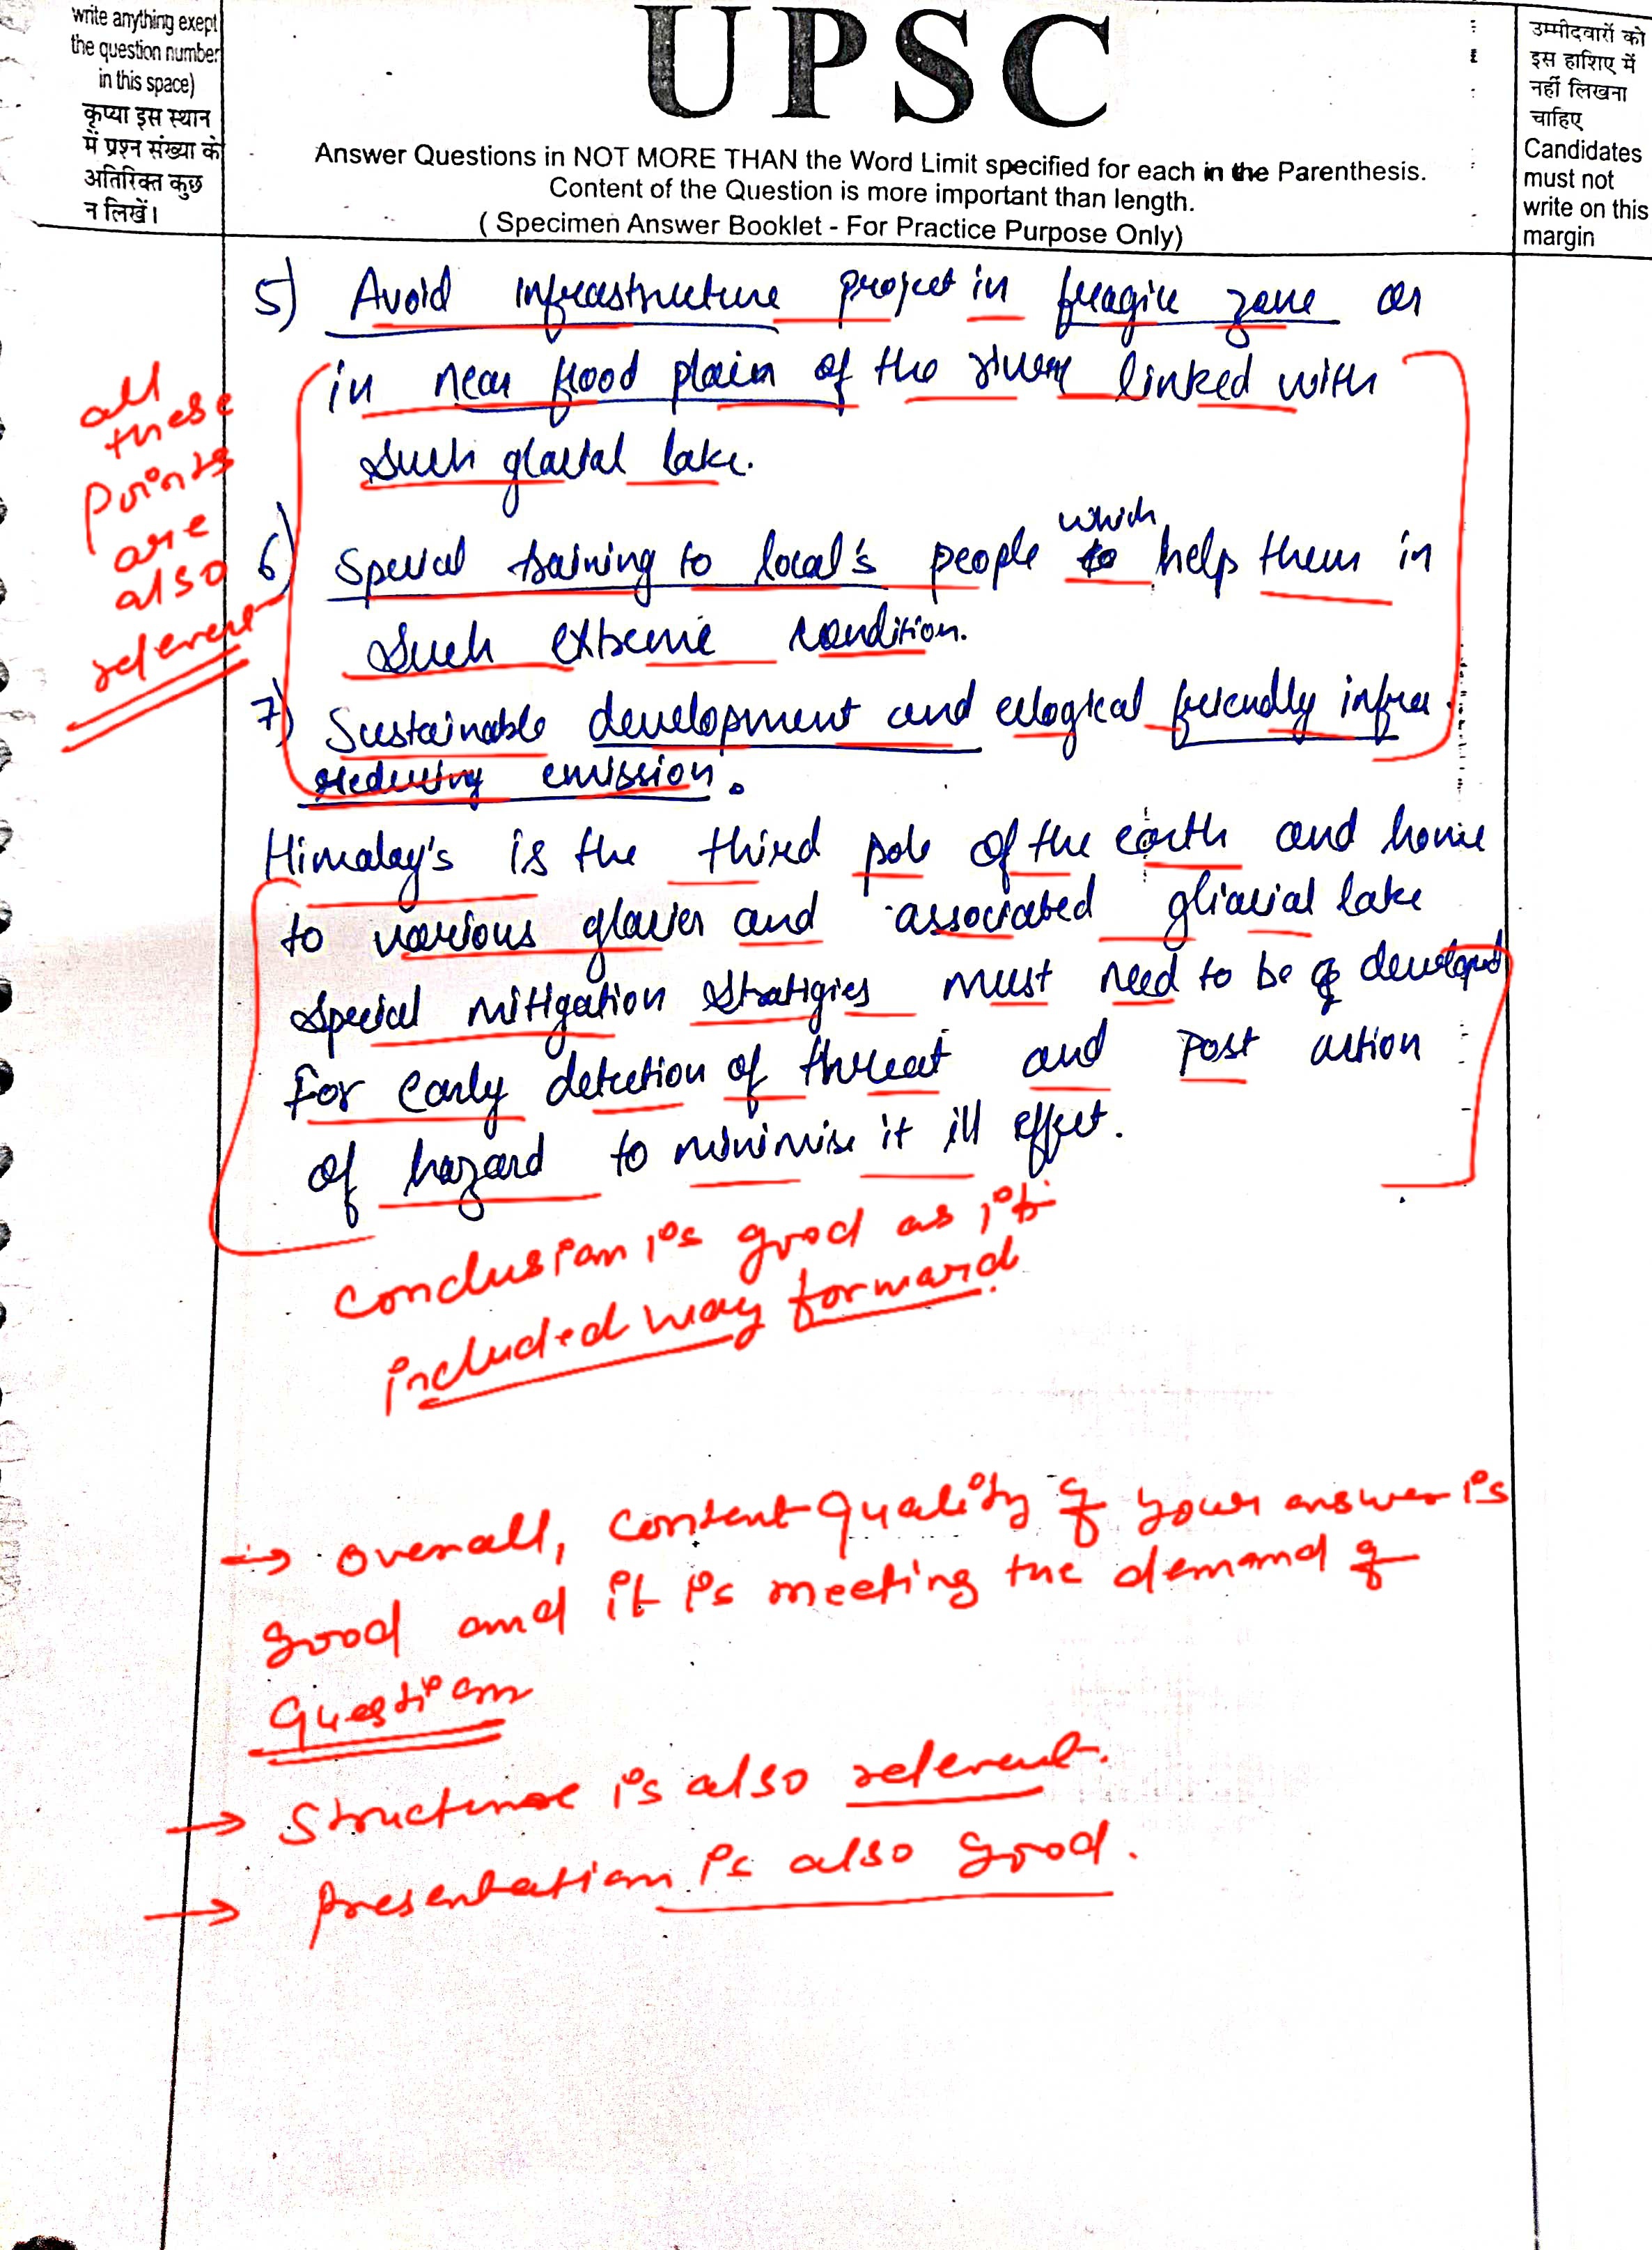 write anything exept
the question number
in this space)
कृप्या इस स्थान
में प्रश्न संख्या के
अतिरिक्त कुछ
न लिखें।
UPSC
Answer Questions in NOT MORE THAN the Word Limit specified for each in the Parenthesis.
Content of the Question is more important than length.
( Specimen Answer Booklet - For Practice Purpose Only)
उम्मीदवारों को
इस हाशिए में
नहीं लिखना
चाहिए
Candidates
must not
write on this
margin
5) Avoid infrastructure project in fragile zone or
in near flood plain of the river linked with
such glacial lake.
6) Special training to local's people which help them in
such extreme condition.
7) Sustainable development and ecological friendly infra
reducing emission.
all
these
points
are
also
relevent
Himalay's is the third pole of the earth and home
to various glacier and associated gliacial lake
special mitigation stratigies must need to be developed
For early detection of threat and post action
of hazard to minimise it ill effect.
Conclusion is good as it
included way forward.
→ Overall, content quality of your answer is
good and it is meeting the demand of
Question
→ Structure is also relevent.
→ Presentation is also good.